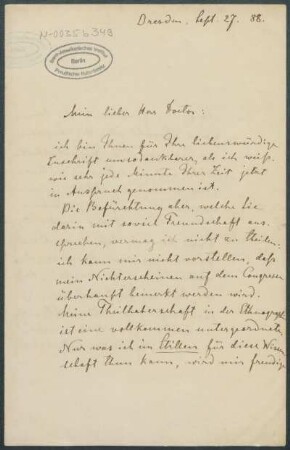 Dresden, Sept. 27. 88.
N-0025 b 348
Ibero-Amerikanisches Institut
Berlin
Preußischer Kulturbesitz
Mein lieber Herr Doctor:
ich bin Ihnen für Ihre liebenswürdige
Zuschrift umsodankbarer, als ich weiß,
wie sehr jede Minute Ihrer Zeit jetzt
in Anspruch genommen ist.
Die Befürchtung aber, welche Sie
darin mit soviel Freundschaft aus-
sprechen, vermag ich nicht zu theilen.
ich kann mir nicht vorstellen, daß
mein Nichterscheinen auf dem Congresse
überhaupt bemerkt werden wird.
Meine Theilhaberschaft in der Ethnograph.
ist eine vollkommen untergeordnete.
Nur was ich im Stillen für diese Wissen-
schaft thun kann, wird mir freudige